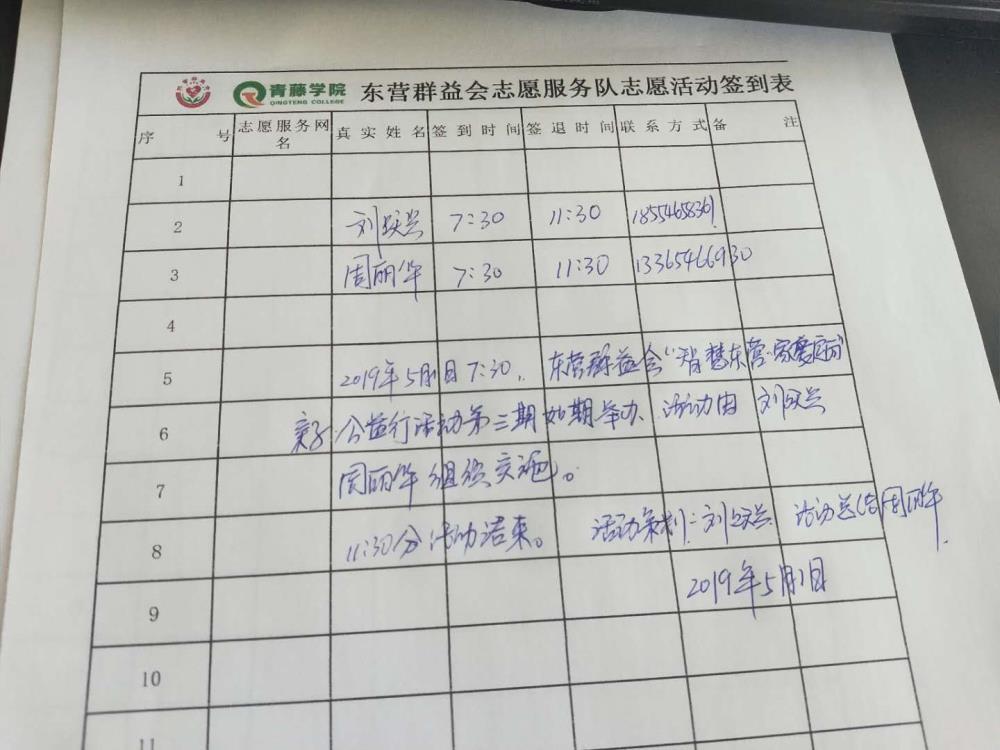 青藤学院 QINGTENG COLLEGE 东营群益会志愿服务队志愿活动签到表
序号 志愿服务网名 真实姓名 签到时间 签退时间 联系方式 备注
1
2 7:30 11:30 1855465836
3 周丽华 7:30 11:30 13365466930
4
5 2019年5月1日7:30, 东营群益会“智慧东营·家
6 亲子 公益行活动第三期如期举办、活动由 刘
7 周丽华组织实施。
8 11:30分活动结束。 活动策划: 刘 活动总结 周丽华
2019年5月1日
9
10
11